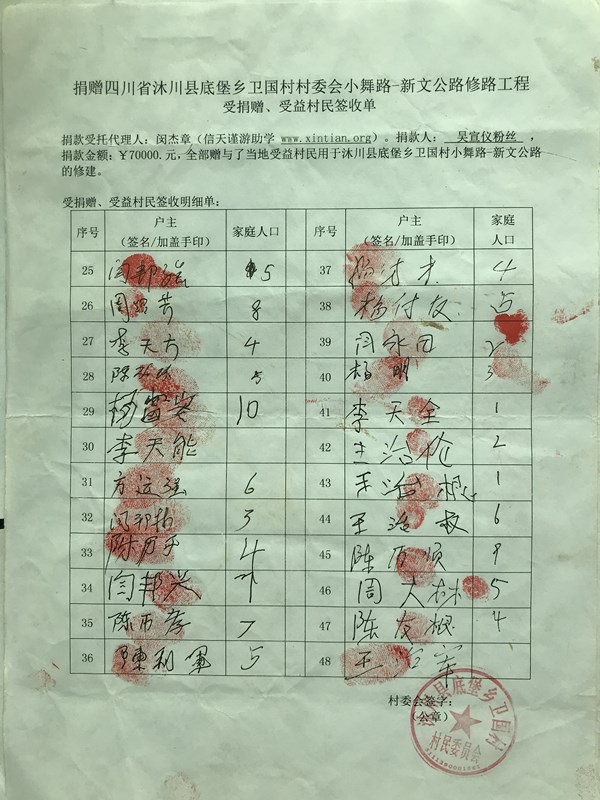 捐赠四川省沐川县底堡乡卫国村村委会小舞路-新文公路修路工程
受捐赠、受益村民签收单
捐款受托代理人：闵杰章（信天谨游助学 www.xintian.org）。捐款人： 吴宣仪粉丝 ，
捐款金额：￥70000.元，全部赠与了当地受益村民用于沐川县底堡乡卫国村小舞路-新文公路
的修建。
受捐赠、受益村民签收明细单：
序号 户主 家庭人口 序号 户主 家庭
（签名/加盖手印） （签名/加盖手印） 人口
25 5 37 4
26 38 杨付友 5
27 李天方 4 39 闫永田 2
28 5 40 杨明 3
29 10 41 李天全 1
30 李天能 42 王治伦 2
31 方远强 6 43 王治根 1
32 3 44 王治 6
33 陈万千 4 45 陈万顺
34 闫邦兴 46 周人林 5
35 7 47 陈友根 4
36 陳利軍 5 48 王
村委会签字：
（公章）
沐川县底堡乡卫国村
村民委员会